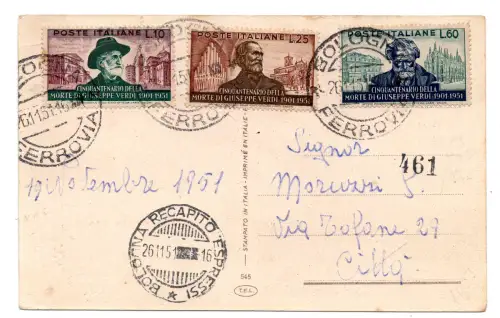 POSTE ITALIANE L.10
CINQUANTENARIO DELLA
MORTE DI GIUSEPPE VERDI 1901-1951
POSTE ITALIANE L.25
CINQUANTENARIO DELLA
MORTE DI GIUSEPPE VERDI 1901-1951
POSTE ITALIANE L.60
CINQUANTENARIO DELLA
MORTE DI GIUSEPPE VERDI 1901-1951
FERROVIA
FERROVIA
BOLOGNA
FERROVIA
Novembre 1951
BOLOGNA RECAPITO ESPRESSI
26 11 51 16
STAMPATO IN ITALIA - IMPRIMÉ EN ITALIE
545
Signor
461
Via Tofane 29
Città